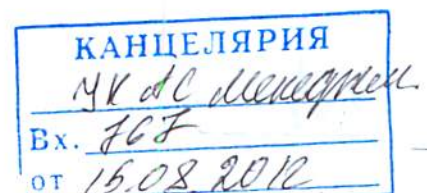 КАНЦЕЛЯРИЯ
УК АС Менеджмент
Вх. 767
от 15.08.2012